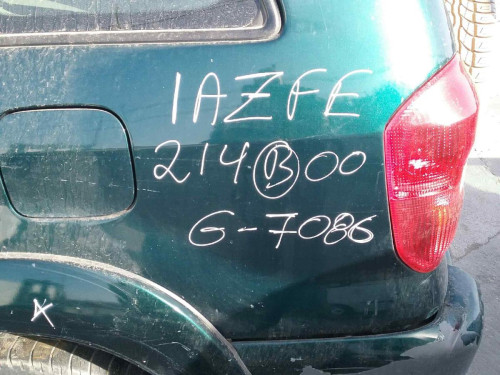 1AZFE
214 B 00
G-7086